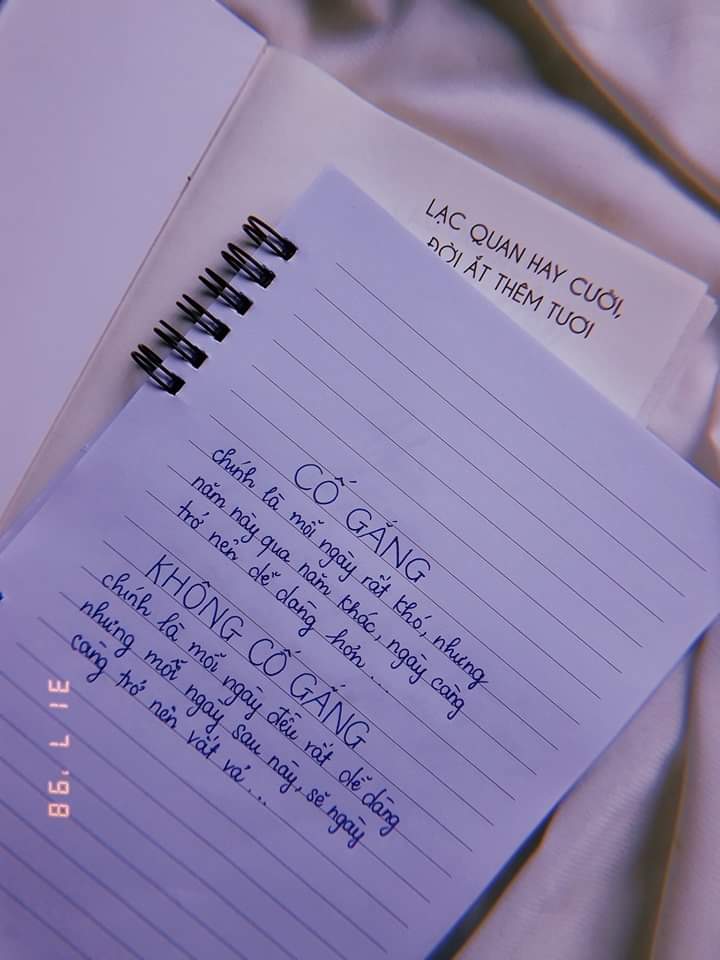 LẠC QUAN HAY CƯỜI,
ĐỜI ẮT THÊM TƯƠI
CỐ GẮNG
chính là mỗi ngày rất khó, nhưng
năm này qua năm khác, ngày càng
trở nên dễ dàng hơn...
KHÔNG CỐ GẮNG
chính là mỗi ngày đều rất dễ dàng
nhưng mỗi ngày sau này, sẽ ngày
càng trở nên vất vả...